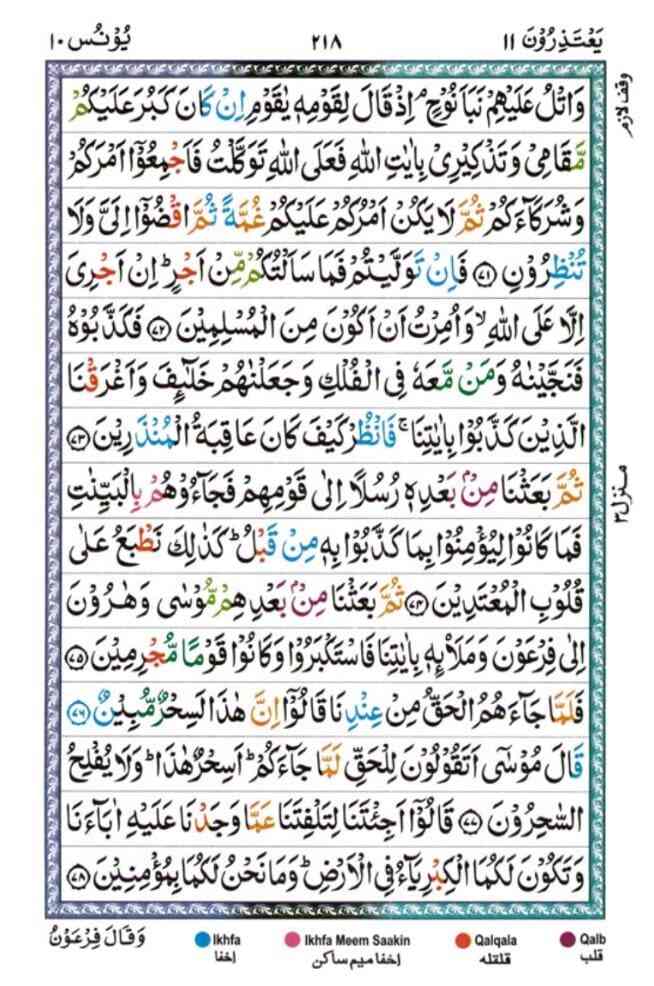 يَعْتَذِرُوْنَ ١١
٢١٨
يُوْنُس ١٠
وَاتْلُ عَلَيْهِمْ نَبَاَ نُوْحٍ ۘ اِذْ قَالَ لِقَوْمِهٖ يٰقَوْمِ اِنْ كَانَ كَبُرَ عَلَيْكُمْ
وقف لازم
مَّقَامِىْ وَتَذْكِيْرِىْ بِاٰيٰتِ اللّٰهِ فَعَلَى اللّٰهِ تَوَكَّلْتُ فَاَجْمِعُوْۤا اَمْرَكُمْ
وَشُرَكَآءَكُمْ ثُمَّ لَا يَكُنْ اَمْرُكُمْ عَلَيْكُمْ غُمَّةً ثُمَّ اقْضُوْۤا اِلَىَّ وَلَا
تُنْظِرُوْنِ ﴿٧١﴾ فَاِنْ تَوَلَّيْتُمْ فَمَا سَاَلْتُكُمْ مِّنْ اَجْرٍ ؕ اِنْ اَجْرِىَ
اِلَّا عَلَى اللّٰهِ ۙ وَاُمِرْتُ اَنْ اَكُوْنَ مِنَ الْمُسْلِمِيْنَ ﴿٧٢﴾ فَكَذَّبُوْهُ
فَنَجَّيْنٰهُ وَمَنْ مَّعَهٗ فِى الْفُلْكِ وَجَعَلْنٰهُمْ خَلٰٓئِفَ وَاَغْرَقْنَا
الَّذِيْنَ كَذَّبُوْا بِاٰيٰتِنَا ۚ فَانْظُرْ كَيْفَ كَانَ عَاقِبَةُ الْمُنْذَرِيْنَ ﴿٧٣﴾
ثُمَّ بَعَثْنَا مِنْۢ بَعْدِهٖ رُسُلًا اِلٰى قَوْمِهِمْ فَجَآءُوْهُمْ بِالْبَيِّنٰتِ
منزل ٣
فَمَا كَانُوْا لِيُؤْمِنُوْا بِمَا كَذَّبُوْا بِهٖ مِنْ قَبْلُ ؕ كَذٰلِكَ نَطْبَعُ عَلٰى
قُلُوْبِ الْمُعْتَدِيْنَ ﴿٧٤﴾ ثُمَّ بَعَثْنَا مِنْۢ بَعْدِهِمْ مُّوْسٰى وَهٰرُوْنَ
اِلٰى فِرْعَوْنَ وَمَلَا۟ئِهٖ بِاٰيٰتِنَا فَاسْتَكْبَرُوْا وَكَانُوْا قَوْمًا مُّجْرِمِيْنَ ﴿٧٥﴾
فَلَمَّا جَآءَهُمُ الْحَقُّ مِنْ عِنْدِنَا قَالُوْۤا اِنَّ هٰذَا لَسِحْرٌ مُّبِيْنٌ ﴿٧٦﴾
قَالَ مُوْسٰٓى اَتَقُوْلُوْنَ لِلْحَقِّ لَمَّا جَآءَكُمْ ؕ اَسِحْرٌ هٰذَا ؕ وَلَا يُفْلِحُ
السّٰحِرُوْنَ ﴿٧٧﴾ قَالُوْۤا اَجِئْتَنَا لِتَلْفِتَنَا عَمَّا وَجَدْنَا عَلَيْهِ اٰبَآءَنَا
وَتَكُوْنَ لَكُمَا الْكِبْرِيَآءُ فِى الْاَرْضِ ؕ وَمَا نَحْنُ لَكُمَا بِمُؤْمِنِيْنَ ﴿٧٨﴾
وَقَالَ فِرْعَوْنُ
Ikhfa
اخفا
Ikhfa Meem Saakin
اخفا میم ساکن
Qalqala
قلقله
Qalb
قلب